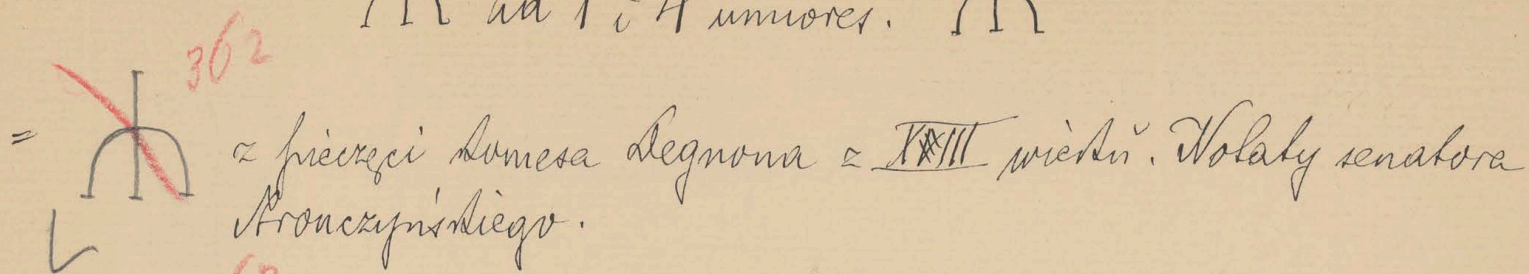 od 1 i 4 unuores.
362
= z pieczęci komesa Degnona z XIII wieku. Notaty senatora
Stronczyńskiego.